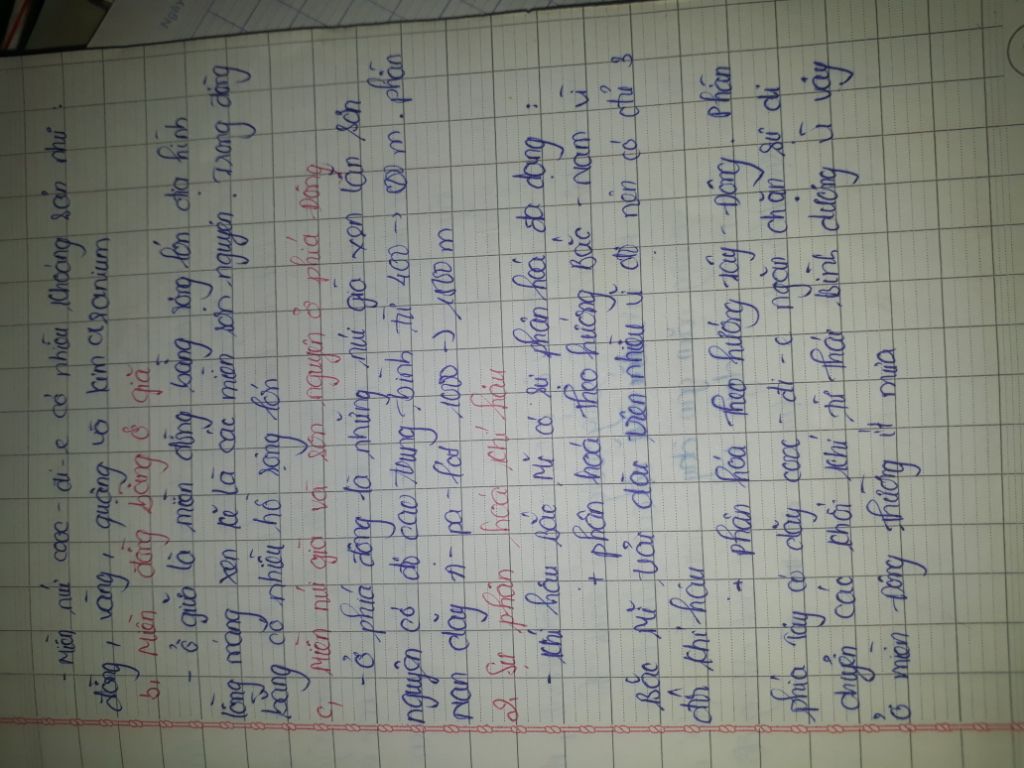 - Miền núi cooc-đi-e có nhiều khoáng sản như :
đồng, vàng, quặng và kim
b, Miền đồng bằng ở giữa
- Ở giữa là miền đồng bằng rộng lớn địa hình
lòng máng xen kẽ là các miền sơn nguyên. Trong đồng
bằng có nhiều hồ sông lớn
c, Miền núi già và sơn nguyên ở phía đông
- Ở phía đông là những núi già xen lẫn sơn
nguyên có độ cao trung bình từ 400 -> 500 m. phần
nan dãy A-pa-lat 1000 -> 1500 m
2. Sự phân hoá khí hậu
- khí hậu bắc Mĩ có sự phân hoá đa dạng :
+ phân hoá theo hướng Bắc - nam vì
Bắc Mĩ trải dài trên nhiều vĩ độ nên có đủ 3
đới khí hậu
+ phân hóa theo hướng tây - Đông. phần
phía tây có dãy cooc-đi-e ngăn chặn sự di
chuyển các khối khí từ thái bình dương vì vậy
ở miền Đông thường ít mưa
Ngày